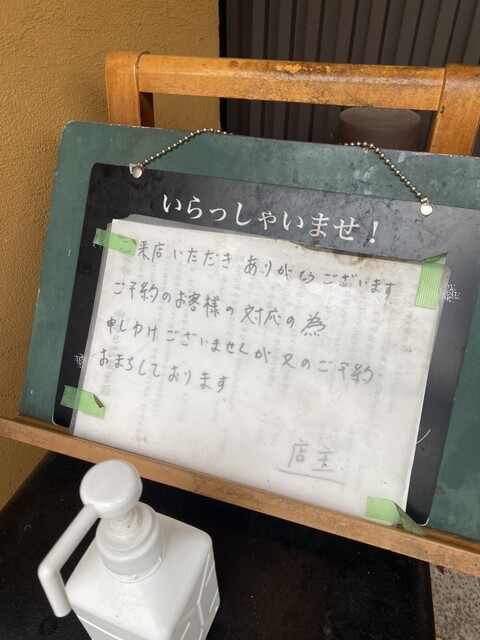 いらっしゃいませ！
来店いただき ありがとうございます
ご予約のお客様の対応の為
申しわけございませんが又のご予約
おまちしております
店主